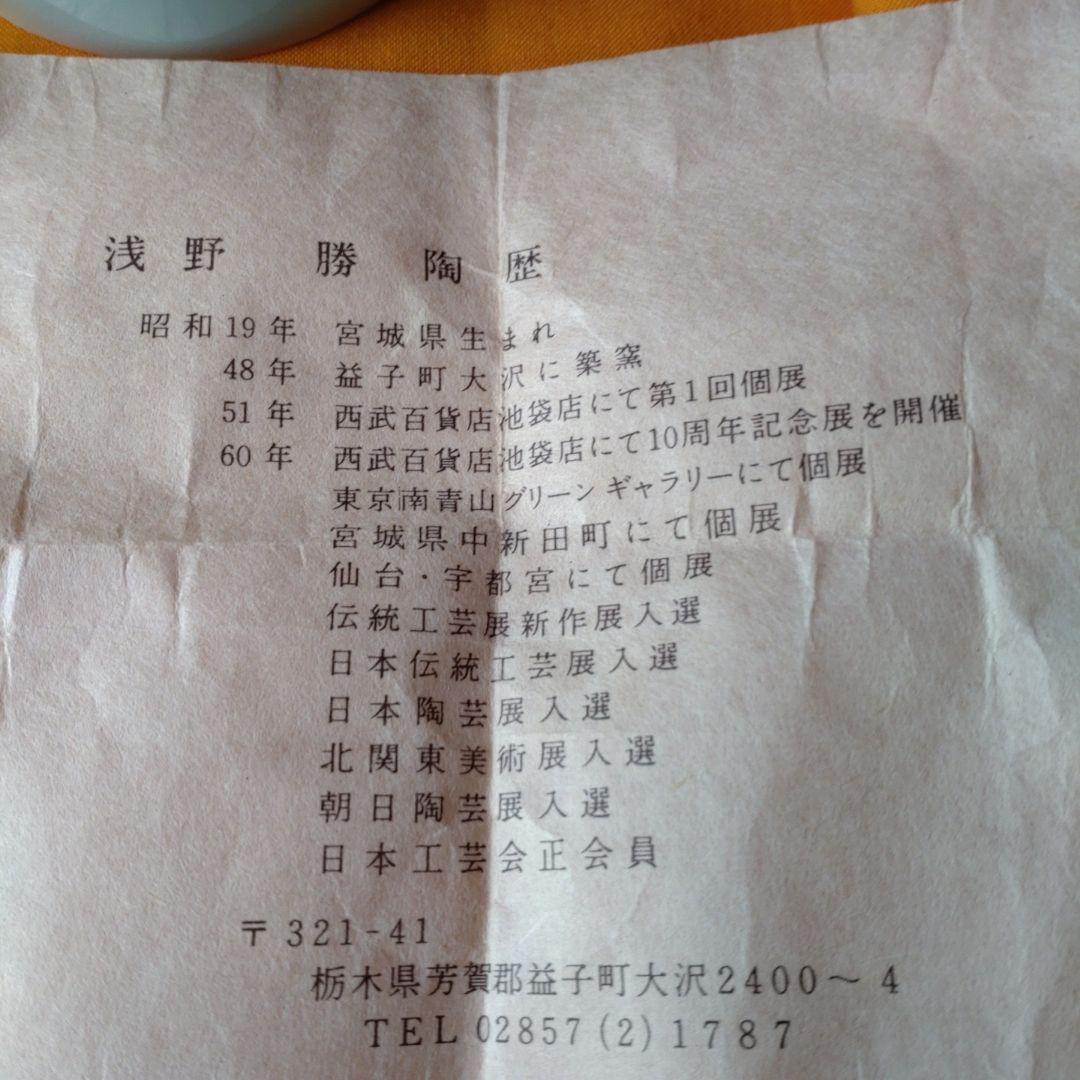 浅野 勝 陶歴
昭和19年 宮城県生まれ
48年 益子町大沢に築窯
51年 西武百貨店池袋店にて第1回個展
60年 西武百貨店池袋店にて10周年記念展を開催
東京南青山グリーンギャラリーにて個展
宮城県中新田町にて個展
仙台・宇都宮にて個展
伝統工芸展新作展入選
日本伝統工芸展入選
日本陶芸展入選
北関東美術展入選
朝日陶芸展入選
日本工芸会正会員
〒321-41
栃木県芳賀郡益子町大沢2400～4
TEL 02857(2)1787